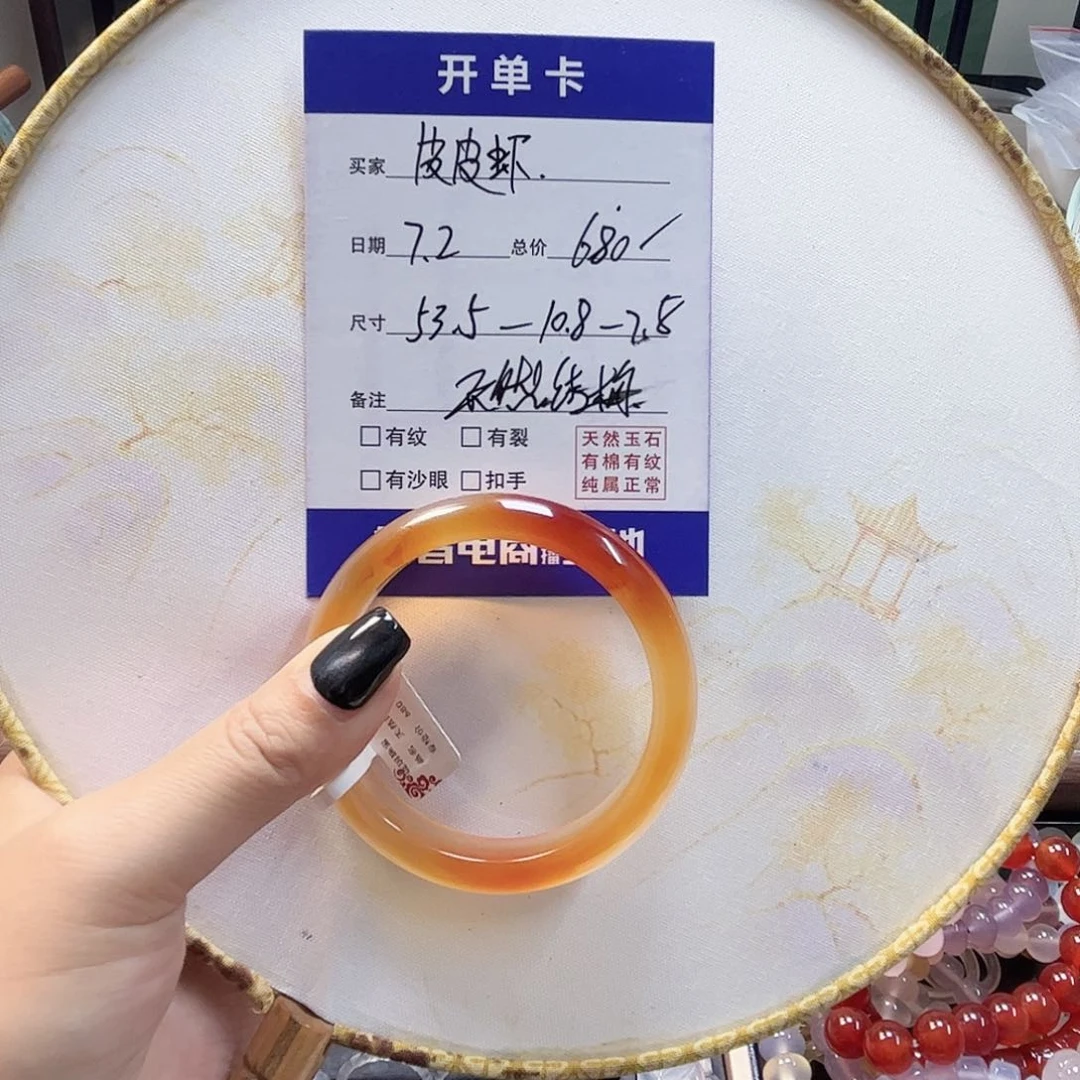 开单卡
买家 皮皮虾.
日期 7.2 总价 680
尺寸 53.5—10.8—7.8
备注 天然结构.
□有纹 □有裂
□有沙眼 □扣手
天然玉石
有棉有纹
纯属正常
电商播